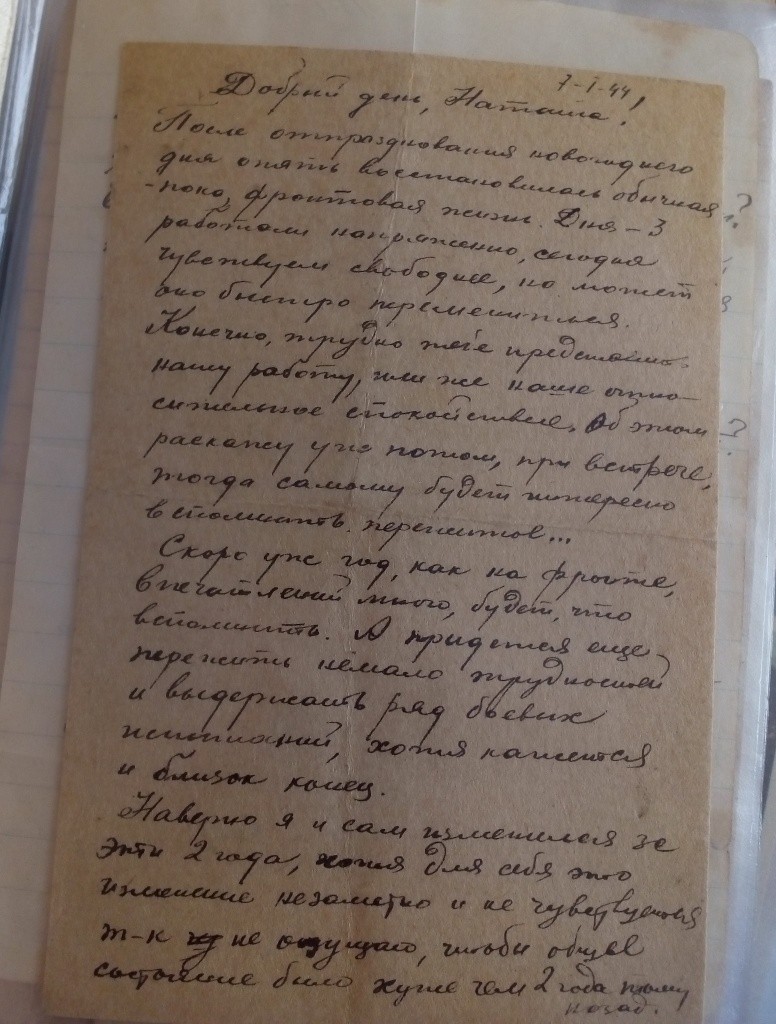 7-I-44
Добрый день, Наташа!
После отпразднования новогоднего
дня опять восстановилась обычная
-пока, фронтовая жизнь. Дня-3
работали напряженно, сегодня
чувствуем свободнее, но может
оно быстро перемениться.
Конечно, трудно тебе представить
нашу работу, или же наше отно-
сительное спокойствие. Об этом
раскажу уже потом, при встрече,
тогда самому будет интересно
вспоминать пережитое...
Скоро уже год, как на фронте,
впечатлений много, будет, что
вспоминать. А придется еще
пережить немало трудностей
и выдержать ряд боевых
испытаний, хотя кажется
и близок конец.
Наверно я и сам изменился за
эти 2 года, хотя для себя это
изменение незаметно и не чувствуется
т-к не ощущаю, чтобы общее
состояние было хуже чем 2 года тому
назад.